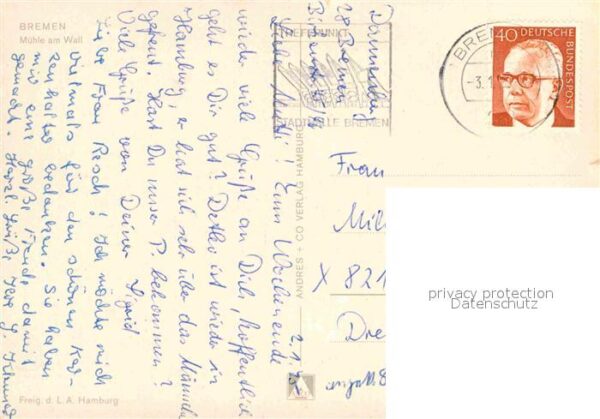 BREMEN
Mühle am Wall
2.1.75
Liebe Mutti! Zum Wochenende
wieder viele Grüße an Dich, hoffentlich
geht es Dir gut? Detlev ist wieder in
Hamburg, er hat sich sehr über das
gefreut. Hast Du unser P. bekommen?
Viele Grüße von Deiner Sigrid
Liebe Frau Resch! Ich möchte mich
vielmals für den schönen Kar-
bedanken. Sie haben
mir eine große Freude damit
gemacht. Herzl. Grüße Ihre
Freig. d. L. A. Hamburg
ANDRES + CO VERLAG HAMBURG
28 Bremen
TREFFPUNKT
STADTHALLE BREMEN
BRE
-3.1
40 DEUTSCHE
BUNDESPOST
Frau
Mil
X 821
Dre
privacy protection
Datenschutz